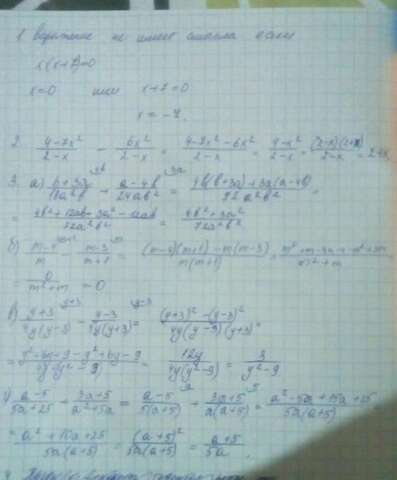 1. выражение не имеет смысла если
x(x+7)=0
x=0 или x+7=0
x=-7.
2. \frac{4-7x^2}{2-x} - \frac{6x^2}{2-x} = \frac{4-7x^2-6x^2}{2-x} = \frac{4-x^2}{2-x} = \frac{(2-x)(2+x)}{2-x} = 2+x
3. а) \frac{b+3a}{18a^2b} + \frac{a-4b}{24ab^2} = \frac{4b(b+3a)+3a(a-4b)}{72a^2b^2} =
= \frac{4b^2+12ab+3a^2-12ab}{72a^2b^2} = \frac{4b^2+3a^2}{72a^2b^2}
б) \frac{m-4}{m} - \frac{m-3}{m+1} = \frac{(m-4)(m+1)-m(m-3)}{m(m+1)} =
= \frac{0}{m^2+m} = 0
в) \frac{y+3}{4y(y-3)} - \frac{y-3}{4y(y+3)} = \frac{(y+3)^2-(y-3)^2}{4y(y-3)(y+3)} =
= \frac{12y}{4y(y^2-9)} = \frac{3}{y^2-9}
\frac{a-5}{5a+25} + \frac{3a+5}{a^2+5a} = \frac{a-5}{5(a+5)} + \frac{3a+5}{a(a+5)} = \frac{a^2-5a+15a+25}{5a(a+5)} =
= \frac{a^2+10a+25}{5a(a+5)} = \frac{(a+5)^2}{5a(a+5)} = \frac{a+5}{5a}.